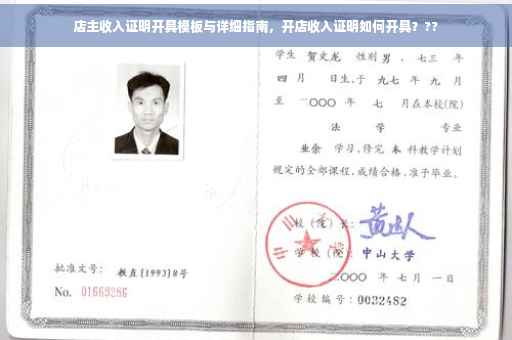 店主收入证明开具模板与详细指南，开店收入证明如何开具？??
学生 贺文龙 性别 男，七三 年
四 月 日生，于 九七 年 九 月
至 二〇〇〇 年 七 月在本校(院)
法 学 专业
业余 学习，修完 本 科教学计划
规定的全部课程，成绩合格，准予毕业。
校 (院) 长:
学 校 (院): 中山大学
二〇〇〇 年 七 月 一 日
批准文号: 教直[1993]8号
No. 01669286
学校编号: 0032482